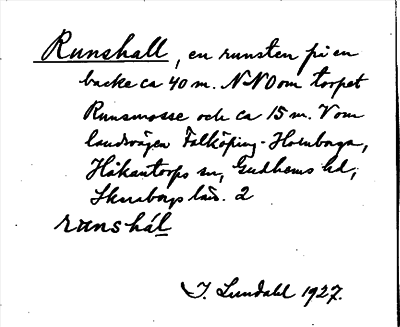 Runshall, en runsten på en
backe ca 40 m. NNO om torpet
Runsmosse och ca 15 m. V om
landsvägen Falköping - Hornborga,
Håkantorps sn, Gudhems hd,
Skaraborgs län. 2
runshál
J. Lundahl 1927.